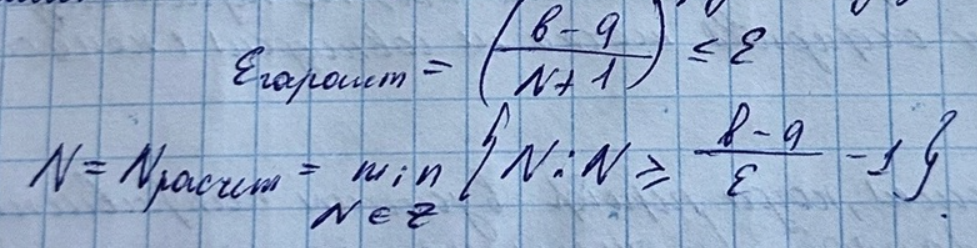 εгарант = ((b - a)/(N + 1)) ≤ ε
N = Nрасчет = min N∈Z {N : N ≥ (b - a)/ε - 1}.